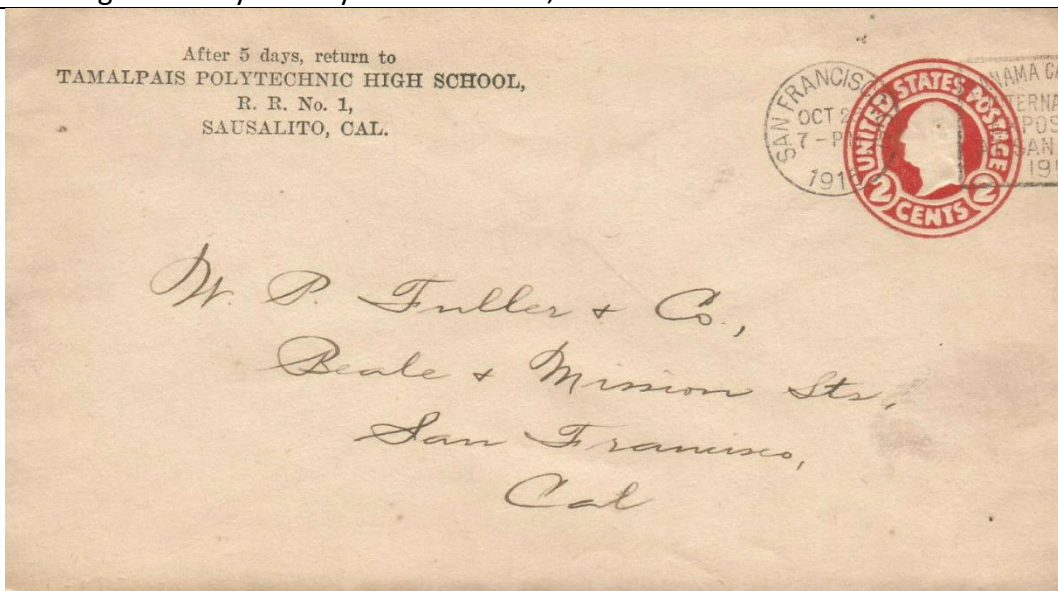 After 5 days, return to
TAMALPAIS POLYTECHNIC HIGH SCHOOL,
R. R. No. 1,
SAUSALITO, CAL.
SAN FRANCISCO
OCT 2
7-P
191
UNITED STATES POSTAGE
2 CENTS 2
NAMA CA
TERNA
POS
SAN
19
W. P. Fuller & Co.,
Beale & Mission Sts,
San Francisco,
Cal